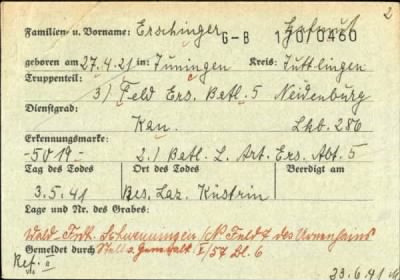 2
Familien- u. Vorname: Erschinger Helmut
G-B 170/0460
geboren am 27.4.21 in: Tuningen Kreis: Tuttlingen
Truppenteil:
3) Feld Ers. Batl. 5 Neidenburg
Dienstgrad:
Kan. 286
Erkennungsmarke:
-5019- 2.) Batl. L. Art. Ers. Abt. 5
Tag des Todes Ort des Todes Beerdigt am
3.5.41 Res. Laz. Küstrin
Lage und Nr. des Grabes:
Wald Frdh. Schwenningen /N Feld 7 des Urnenhains
Gemeldet durch X/57 Bl. 6
Ref. II 23.6.41